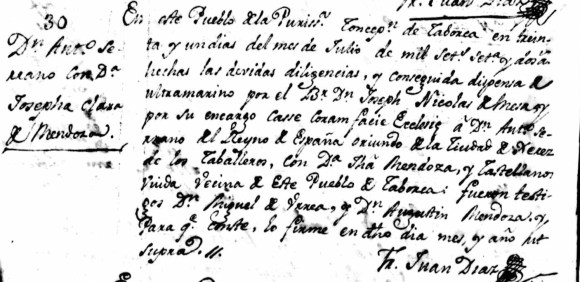 Fr. Juan Diaz
30
Dn. Anto. Se-
rrano con Da.
Josepha Clara
de Mendoza.
En este Pueblo de la Puriss. Concepn. de Caborca en trein-
ta y un dias del mes de Julio de mil sets. seta. y dos a.
hechas las devidas diligencias, y conseguida dispensa de
ultramarino por el Br. Dn. Joseph Nicolas de Mesa, y
por su encargo Casse Coram facie Ecclesie à Dn. Anto. Se-
rrano del Reyno de España oriundo de la Ciudad de Xerez
de los Caballeros, con Da. Mendoza, y Castellano
viuda vecina de este Pueblo de Caborca: fueron testi-
gos Dn. Miguel de Urrea, y Dn. Augustin Mendoza. y
para qe. conste, lo firme en dho dia mes, y año ut
supra.
Fr. Juan Diaz